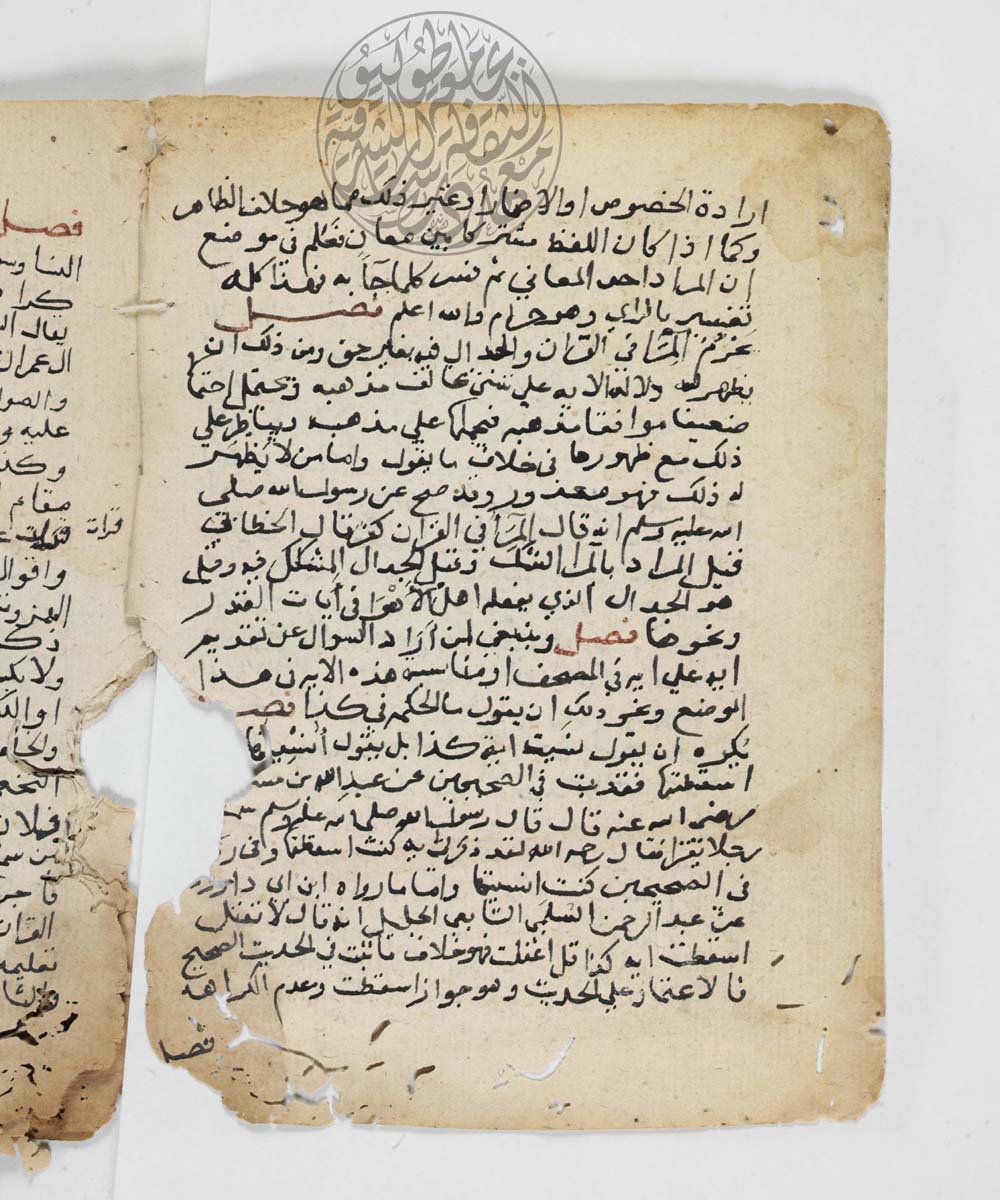 ارادة الخصوص او الاضمار او غير ذلك مما هو خلاف الظاهر
وكما اذا كان اللفظ مشتركا بين معان فعلم في موضع
ان المراد احد المعاني ثم فسر كلما جآ به فهذا كله
تفسير بالراي وهو حرام والله اعلم فصل
يحرم المرآ في القران والجدال فيه بغير حق ومن ذلك ان
يظهر له دلالة الايه علي شئ يخالف مذهبه ويحتمل احتما
ضعيفا موافقا مذهبه فيحملها علي مذهبه ويناظر علي
ذلك مع ظهورها في خلاف ما يقول واما من لا يظهر
له ذلك فهو معذور وقد صح عن رسول الله صلى
الله عليه وسلم انه قال المرآ في القران كفر قال الخطابي
قيل المراد بالمرا الشك وقيل الجدال المشكل فيه وقيل
هو الجدال الذي يفعله اهل الاهوا في أيات القدر
ونحوها فصل وينبغي لمن اراد السوال عن تقديم
ايه علي ايه في المصحف او مناسبه هذه الايه في هذا
الموضع ونحو ذلك ان يقول ما الحكمه في كذا فصـ
يكره ان يقول نسيت اية كذا بل يقول أنسيتها
اسقطتها فقد ثبت في الصحيحين عن عبد الله بن مسـ
رضى الله عنه قال قال رسول الله صلى الله عليه وسلم
رجلا يقرا فقال رحمه الله لقد ذكرني ايه كنت اسقطتها وفي ر
في الصحيحين كنت انسيتها واما ما رواه ابن ابي داوود
عن عبد الرحمن السلمي التابعي الجليل انه قال لا تقل
اسقطت ايه كذا قل اغفلت فهو خلاف ما ثبت في الحديث الصحيح
فالاعتماد علي الحديث وهو جواز اسقطت وعدم الكراهه
فصل
فصل
كرا
يقال
ال عمران
والصوا
عليه و
وكذ
مقام
قرات
واقوال
ولا يكـ
القران